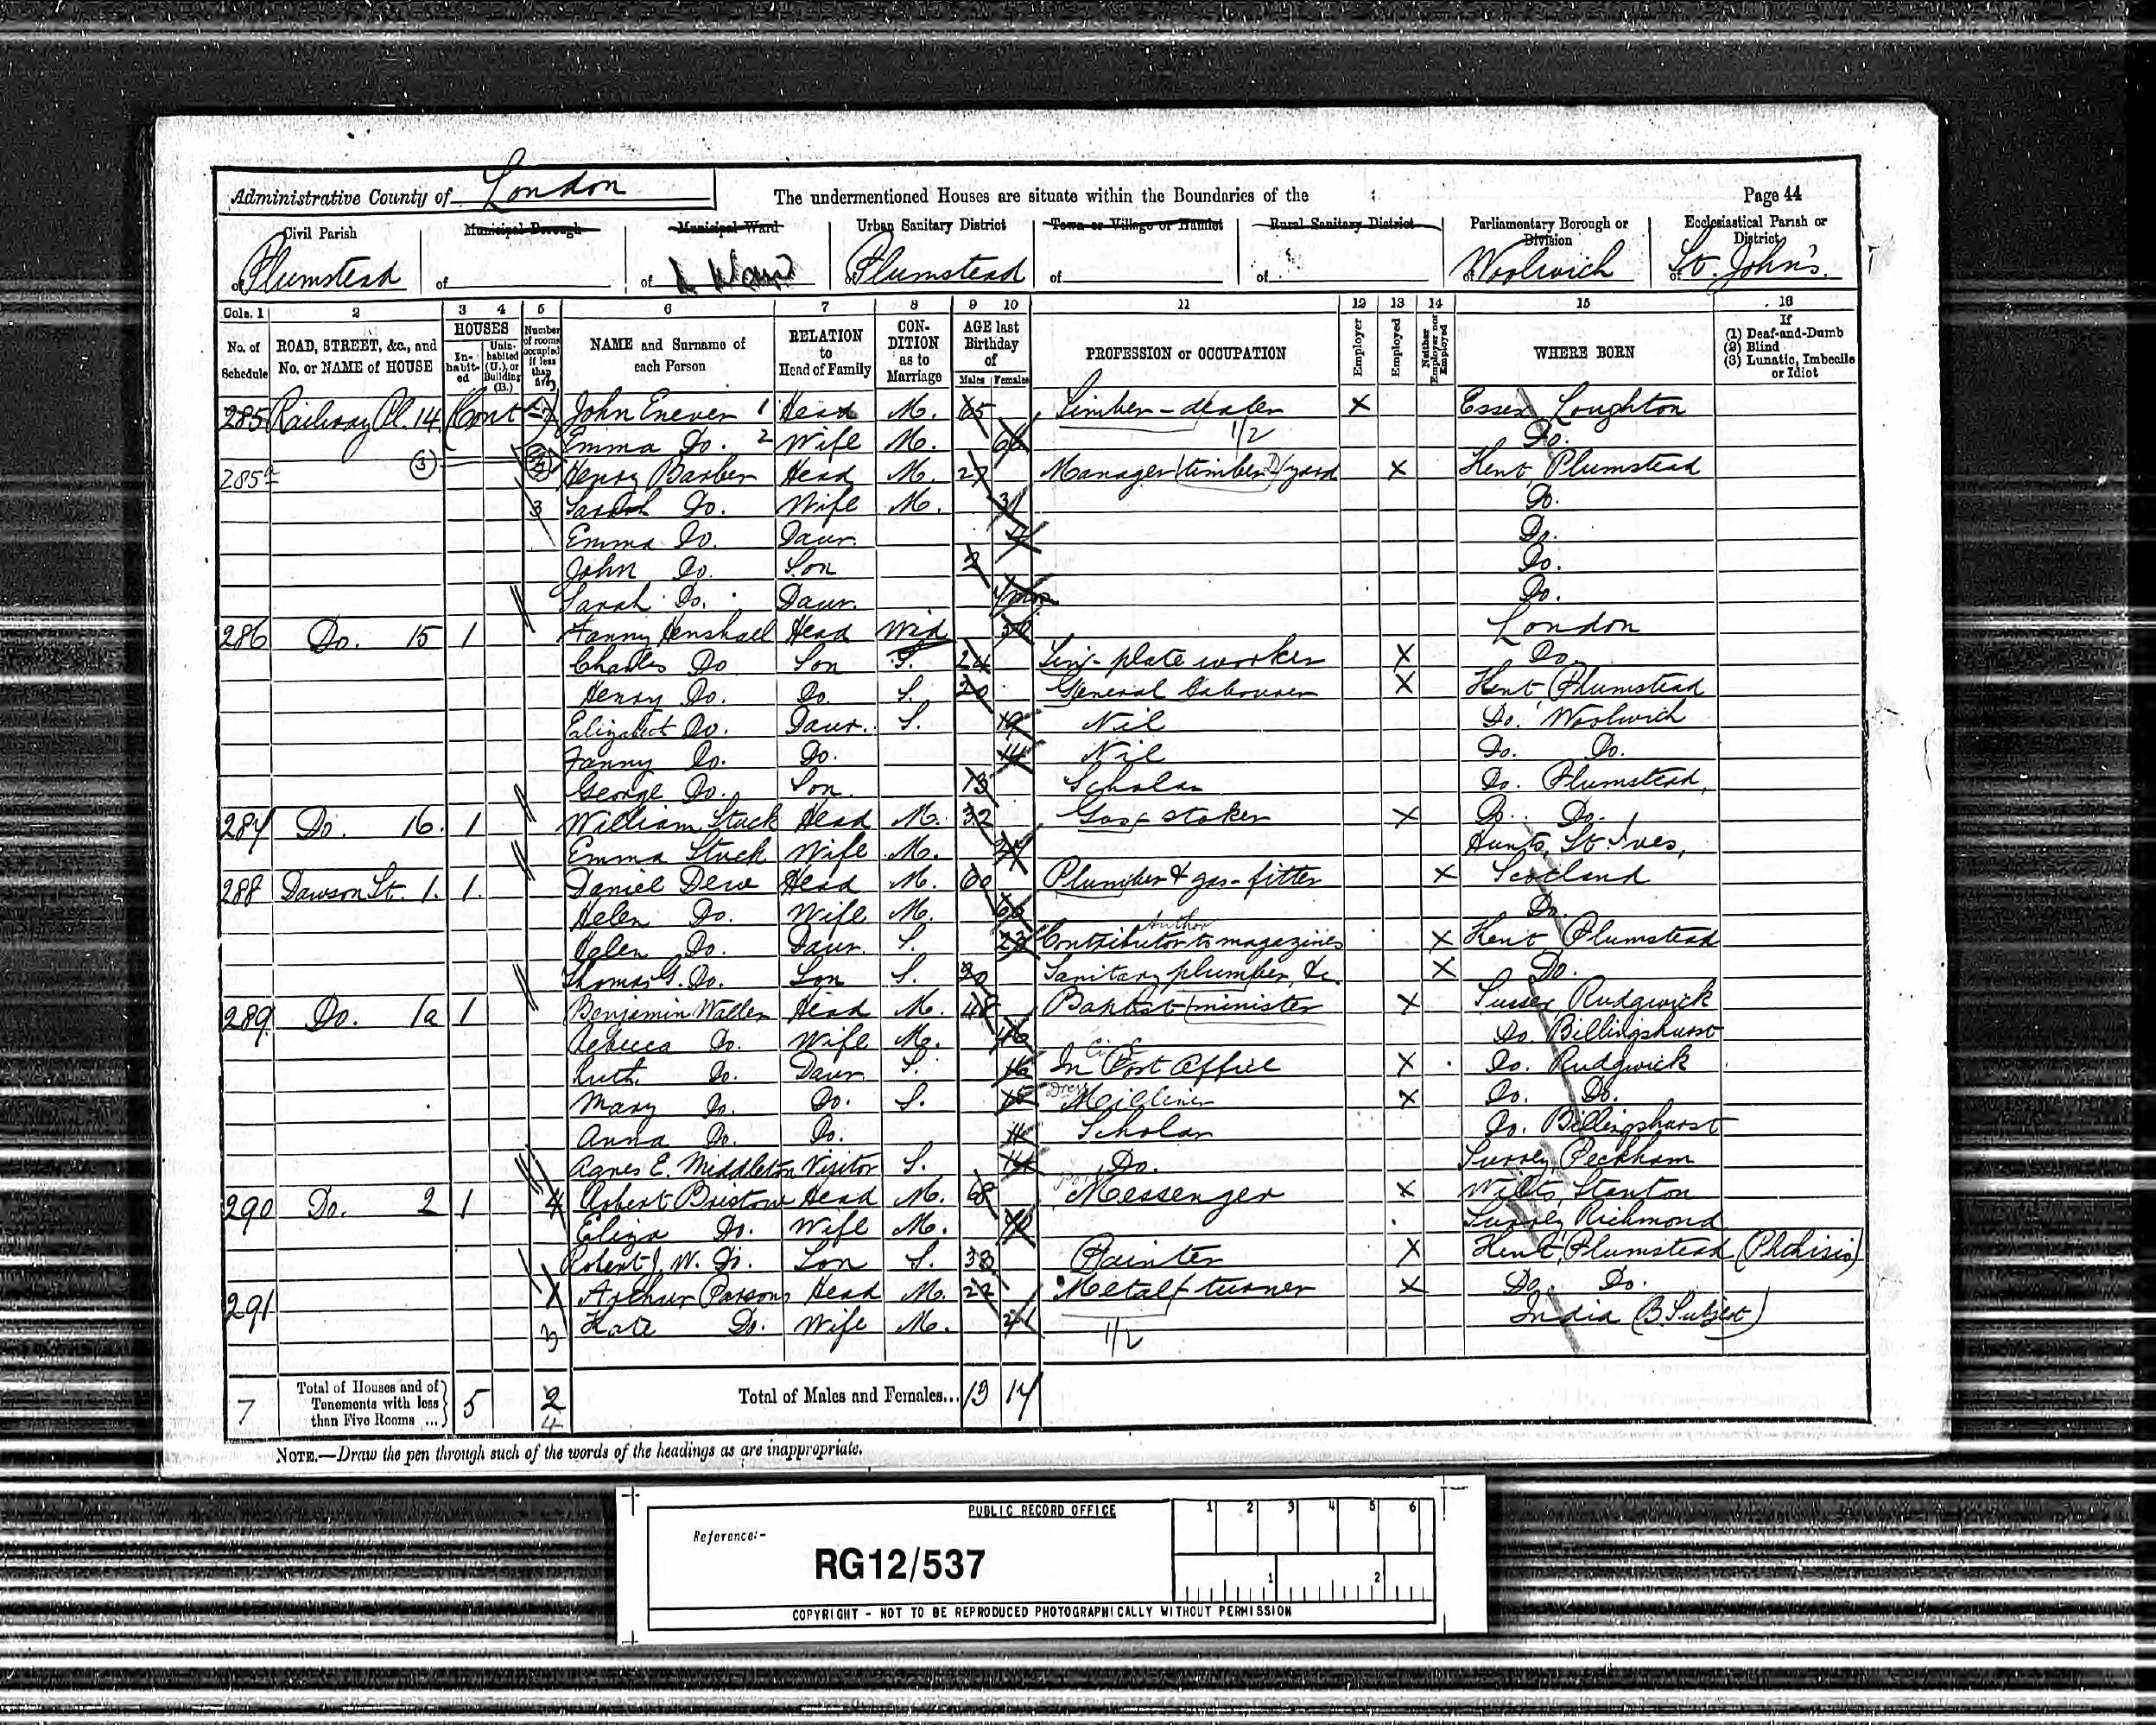 Administrative County of London The undermentioned Houses are situate within the Boundaries of the Page 44
Civil Parish Municipal Borough Municipal Ward Urban Sanitary District Town or Village or Hamlet Rural Sanitary District Parliamentary Borough or Division Ecclesiastical Parish or District
of Plumstead of of of Plumstead of of of Woolwich of St. John's.
Cols. 1 2 3 4 5 6 7 8 9 10 11 12 13 14 15 16
No. of Schedule ROAD, STREET, &c., and No. or NAME of HOUSE HOUSES Inhabited Uninhabited (U.), or Building (B.) Number of rooms occupied if less than five NAME and Surname of each Person RELATION to Head of Family CONDITION as to Marriage AGE last Birthday of Males Females PROFESSION or OCCUPATION Employer Employed Neither Employer nor Employed WHERE BORN If (1) Deaf-and-Dumb (2) Blind (3) Lunatic, Imbecile or Idiot
285 Railway Pl. 14 (Cont John Enever 1 Head M. 65 Timber-dealer X Essex Loughton
Emma Do. 2 Wife M. 66 1/2 Do.
285a (3) Henry Barber Head M. 27 Manager (timber) yard X Kent Plumstead
3 Sarah Do. Wife M. 31 Do.
Emma Do. Daur. 4 Do.
John Do. Son 2 Do.
Sarah Do. Daur. Do.
286 Do. 15 1 Fanny Henshall Head Wid London
Charles Do Son S. 24 Tin-plate worker X Do.
Henry Do. Do. S. 20 General Labourer X Kent Plumstead
Elizabeth Do. Daur. S. 19 Nil Do. Woolwich
Fanny Do. Do. 14 Nil Do. Do.
George Do. Son. 13 Scholar Do. Plumstead,
287 Do. 16. 1 William Stuck Head M. 32 Gas stoker X Do. Do.
Emma Stuck Wife M. Hunts, St. Ives,
288 Dawson St. 1. 1. Daniel Dew Head M. 60 Plumber & gas-fitter X Scotland
Helen Do. Wife M. Do.
Helen Do. Daur. S. Author Contributor to magazines X Kent Plumstead
Thomas G. Do. Son S. Sanitary plumber, &c. X Do.
289 Do. 1a 1 Benjamin Waller Head M. 48 Baptist minister X Sussex Rudgwick
Rebecca Do. Wife M. 46 Do. Billingshurst
Ruth Do. Daur. S. 16 In Post Office X Do. Rudgwick
Mary Do. Do. S. 15 Dress Milliner X Do. Do.
Anna Do. Do. 11 Scholar Do. Billingshurst
Agnes E. Middleton Visitor S. 14 Do. Surrey Peckham
290 Do. 2 1 4 Robert Bristow Head M. 68 Messenger X Wilts, Stanton
Eliza Do. Wife M. Surrey Richmond
Robert J. W. Do. Son S. 33 Painter X Kent, Plumstead (Phthisis)
291 Arthur Parsons Head M. 22 Metal turner X Do. Do.
3 Kate Do. Wife M. 21 1/2 India (B. Subject)
7 Total of Houses and of Tenements with less than Five Rooms ... 5 2 4 Total of Males and Females... 13 17
NOTE.—Draw the pen through such of the words of the headings as are inappropriate.
PUBLIC RECORD OFFICE 1 2 3 4 5 6
Reference:-
RG12/537
1 2
COPYRIGHT - NOT TO BE REPRODUCED PHOTOGRAPHICALLY WITHOUT PERMISSION